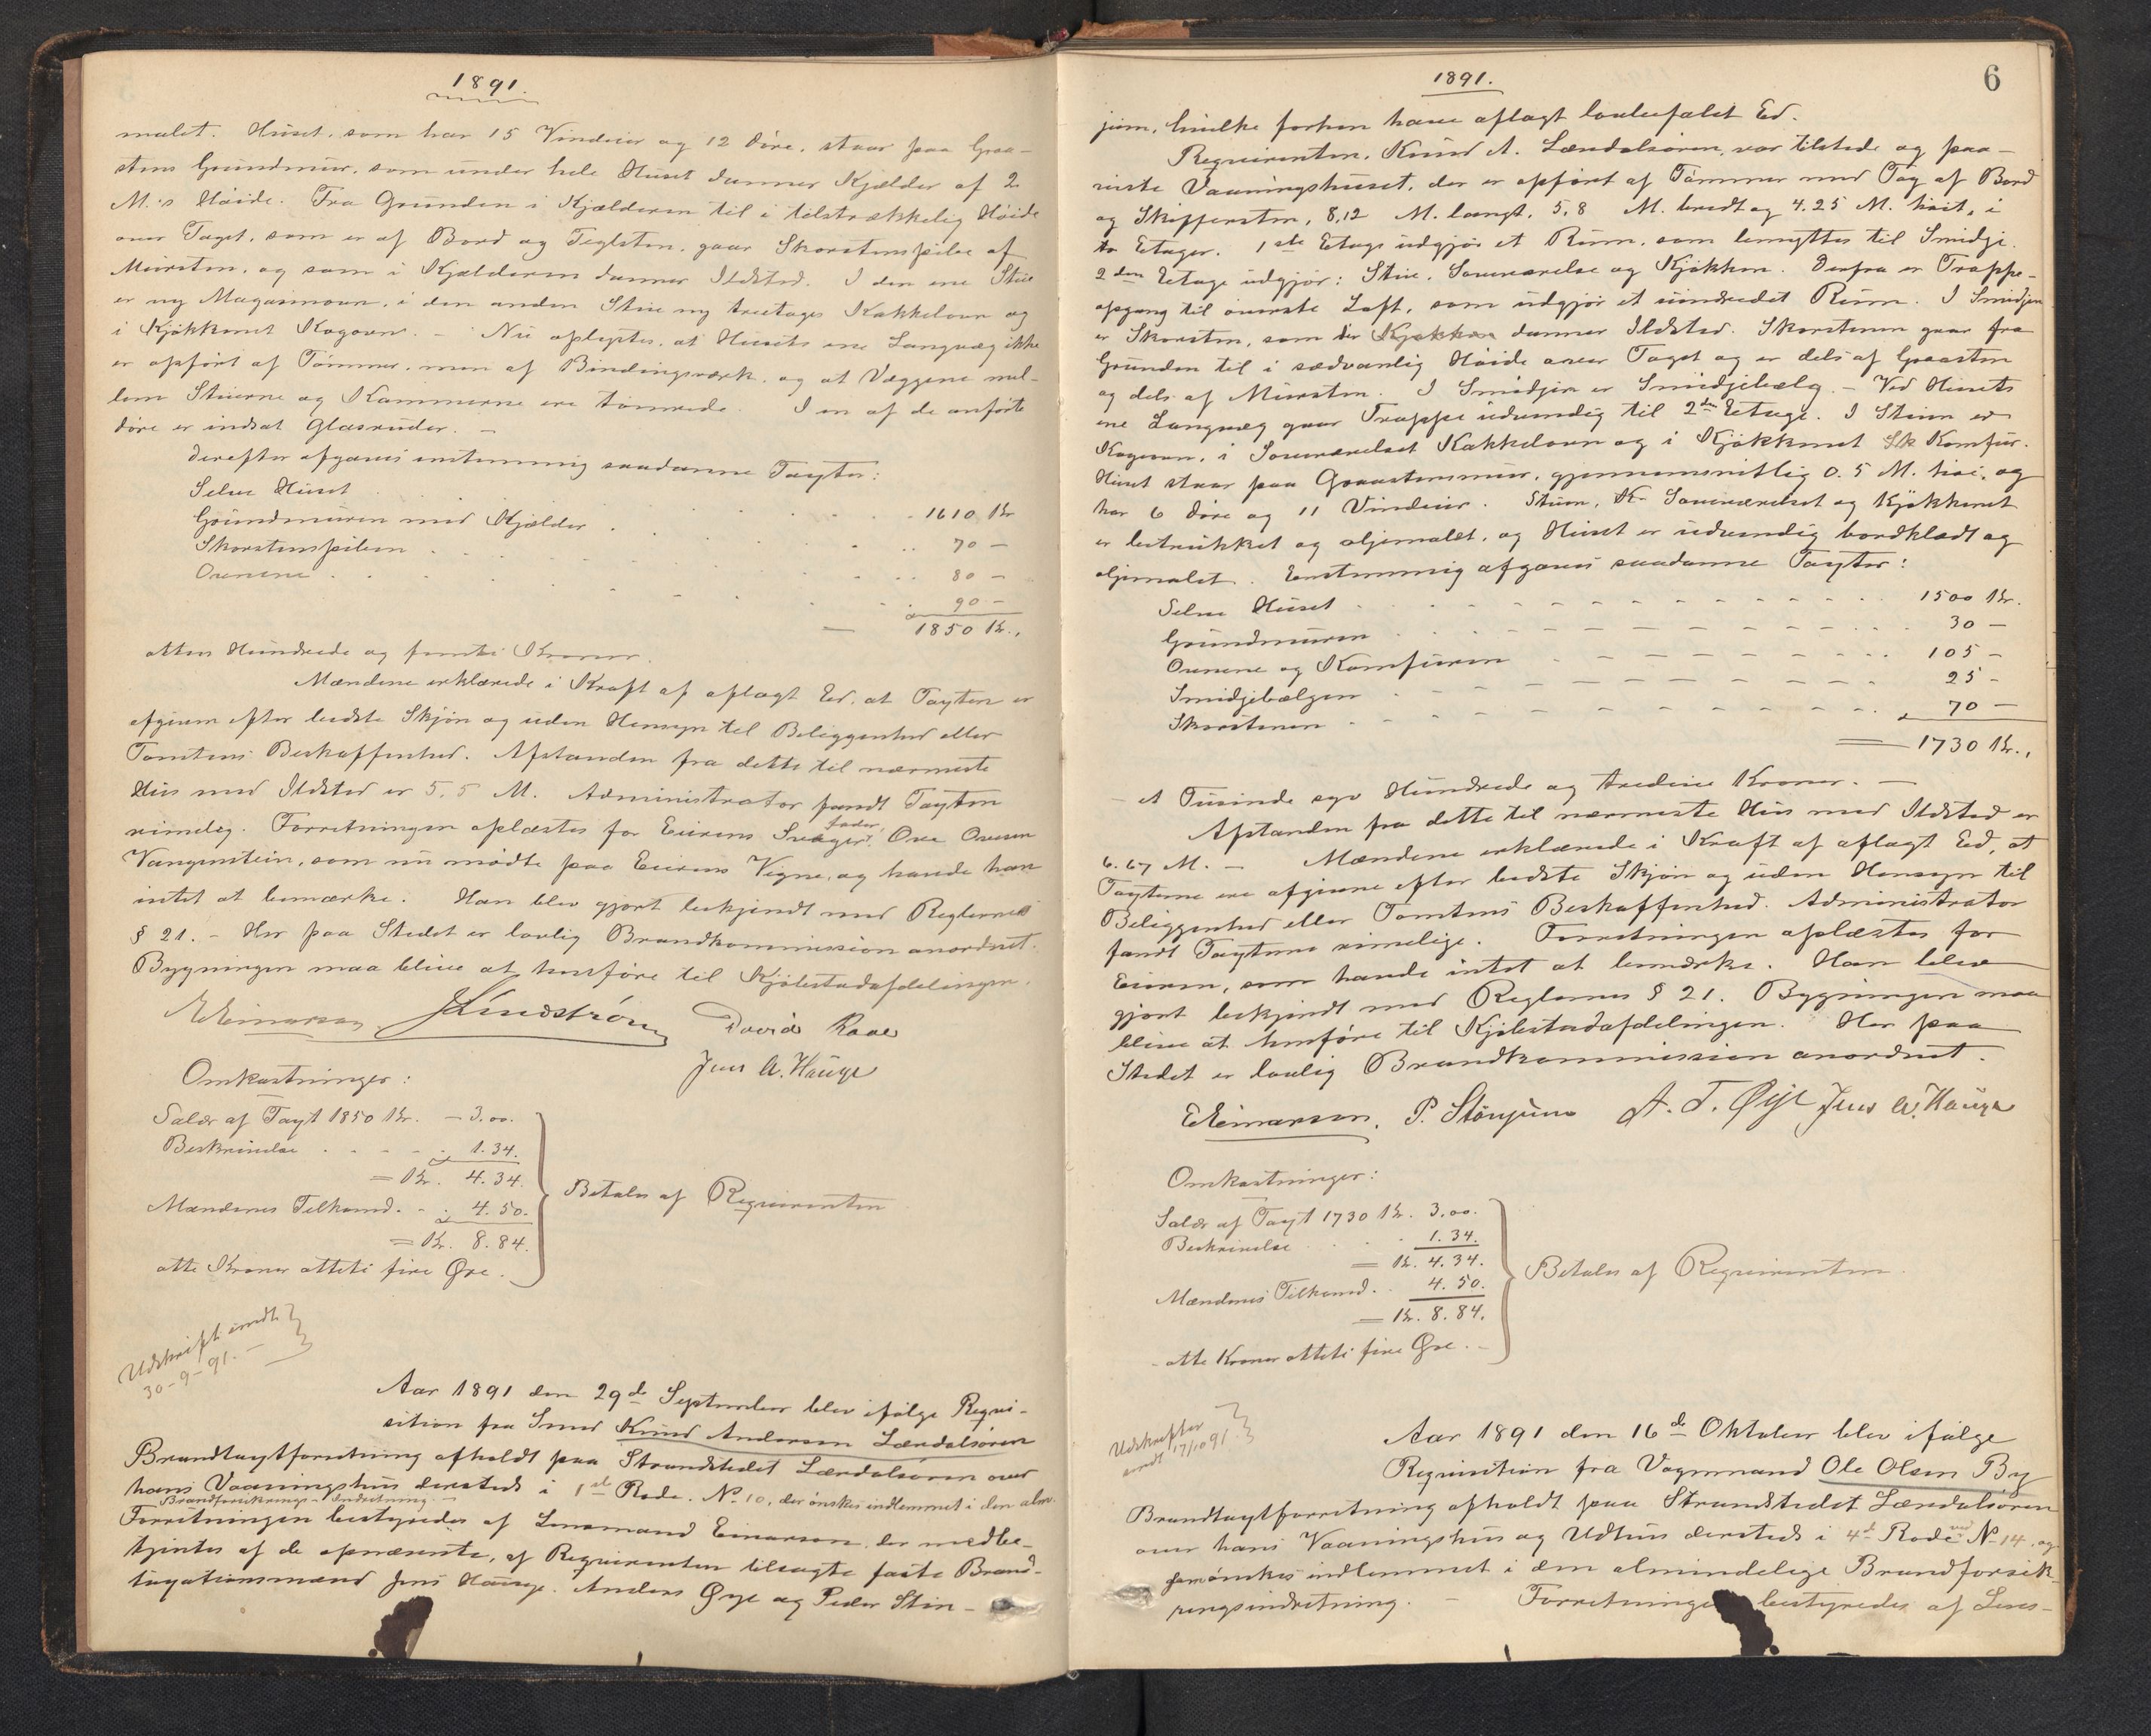 1891.
malet. Huset, som har 15 Vinduer og 12 Døre, staar paa Graa-
stens Grundmur, som under hele Huset danner Kjælder af 2
M.'s Høide. Fra Grunden i Kjælderen til i tilstrækkelig Høide
over Taget, som er af Bord og Teglsten, gaar Skorstenspibe af
Mursten, og som i Kjælderen danner Ildsted. I den ene Stue
er ny Magasinovn, i den anden Stue ny treetages Kakkelovn og
i Kjøkkenet Kogeovn. – Nu oplystes, at Husets ene Langvæg ikke
er opført af Tømmer, men af Bindingsværk, og at Væggene mel-
lem Stuerne og Kammerne ere tømrede. I en af de anførte
Døre er indsat Glasruder. –
Derefter afgaves enstemmig saadanne Taxter:
Selve Huset . . . 1610 Kr
Grundmuren med Kjælder . . . 70 –
Skorstenspiben . . . 80 –
Ovnene . . . 90 –
1850 Kr.,
atten Hundrede og femti Kroner.
Mændene erklærede i Kraft af aflagt Ed, at Taxten er
afgiven efter bedste Skjøn og uden Hensyn til Beliggenhed eller
Tomtens Beskaffenhed. Afstanden fra dette til nærmeste
Hus med Ildsted er 5,5 M. Administrator fandt Taxten
rimelig. Forretningen oplæstes for Eierens Svigerfader, Ove Ovesen
Vangensteen, som nu mødte paa Eierens Vegne, og havde han
intet at bemærke. Han blev gjort bekjendt med Reglernes
§ 21. – Her paa Stedet er lovlig Brandkommission anordnet.
Bygningen maa blive at henføre til Kjøbstadafdelingen.
E Einarsen Lindstrøm David Raae
Jens A. Hauge
Omkostninger:
Salær af Taxt 1850 Kr. – 3.00.
Beskrivelse . . . 1.34.
= Kr. 4.34.
Mændenes Tilkomd. . . 4.50.
= Kr. 8.84.
otte Kroner otteti fire Øre.
Betales af Requirenten
Udskrift sendt
30-9-91. –
Aar 1891 den 29de September blev ifølge Requi-
sition fra Smed Knud Andersen Lærdalsøren
Brandtaxtforretning afholdt paa Strandstedet Lærdalsøren over
hans Vaaningshus dersteds i 1ste Rode. No 10, der ønskes indlemmet i den alm.
Brandforsikrings-Indretning. –
Forretningen bestyredes af Lensmand Einarsen, der medbe-
tjentes af de opnævnte, af Requirenten tilsagte faste Brand-
taxationsmænd Jens Hauge, Anders Øye og Peder Støn-
1891.
6
jum, hvilke forhen have aflagt lovbefalet Ed.
Requirenten, Knud A. Lærdalsøren, var tilstede og paa-
viste Vaaningshuset, der er opført af Tømmer med Tag af Bord
og Skiffersten, 8,12 M. langt, 5,8 M. bredt og 4.25 M. høit, i
to Etager. 1ste Etage udgjør et Rum, som benyttes til Smidje.
2den Etage udgjør: Stue, Soveværelse og Kjøkken. Derfra er Trappe-
opgang til øverste Loft, som udgjør et uindredet Rum. I Smidjen
er Skorsten, som der danner Ildsted. Skorstenen gaar fra
Grunden til i sædvanlig Høide over Taget og er dels af Graasten
og dels af Mursten. I Smidjen er Smidjebælg. – Ved Husets
ene Langvæg gaar Trappe udvendig til 2den Etage. I Stuen er
Kogeovn, i Soveværelset Kakkelovn og i Kjøkkenet Komfur.
Huset staar paa Graastensmur, gjennemsnitlig 0.5 M. høi, og
har 6 Døre og 11 Vinduer. Stuen, Soveværelset og Kjøkkenet
er betrukket og oljemalet, og Huset er udvendig bordklædt og
oljemalet. Enstemmig afgaves saadanne Taxter:
Selve Huset . . . 1500 Kr.
Grundmuren . . . 30 –
Ovnene og Komfuren . . . 105 –
Smidjebælgen . . . 25 –
Skorstenen . . . 70 –
= 1730 Kr.,
– et Tusinde syv Hundrede og tredive Kroner. –
Afstanden fra dette til nærmeste Hus med Ildsted er
6.67 M. – Mændene erklærede i Kraft af aflagt Ed, at
Taxterne ere afgivne efter bedste Skjøn og uden Hensyn til
Beliggenhed eller Tomtens Beskaffenhed. Administrator
fandt Taxterne rimelige. Forretningen oplæstes for
Eieren, som havde intet at bemærke. Han blev
gjort bekjendt med Reglernes § 21. Bygningen maa
blive at henføre til Kjøbstadafdelingen. Her paa
Stedet er lovlig Brandkommission anordnet.
E Einarsen. P. Stønjum A. T. Øye Jens A. Hauge
Omkostninger:
Salær af Taxt 1730 Kr. 3.00.
Beskrivelse . . . 1.34.
= Kr. 4.34.
Mændenes Tilkomd. . . 4.50.
= Kr. 8.84.
– otte Kroner otteti fire Øre. –
Betales af Requirenten.
Udskrifter
sendt 17/10 91.
Aar 1891 den 16de Oktober blev ifølge
Requisition fra Vognmand Ole Olsen By
Brandtaxtforretning afholdt paa Strandstedet Lærdalsøren
over hans Vaaningshus og Udhus dersteds i 4de Rode ved No 14, og
som ønskes indlemmet i den almindelige Brandforsik-
ringsindretning. – Forretningen bestyredes af Lens-